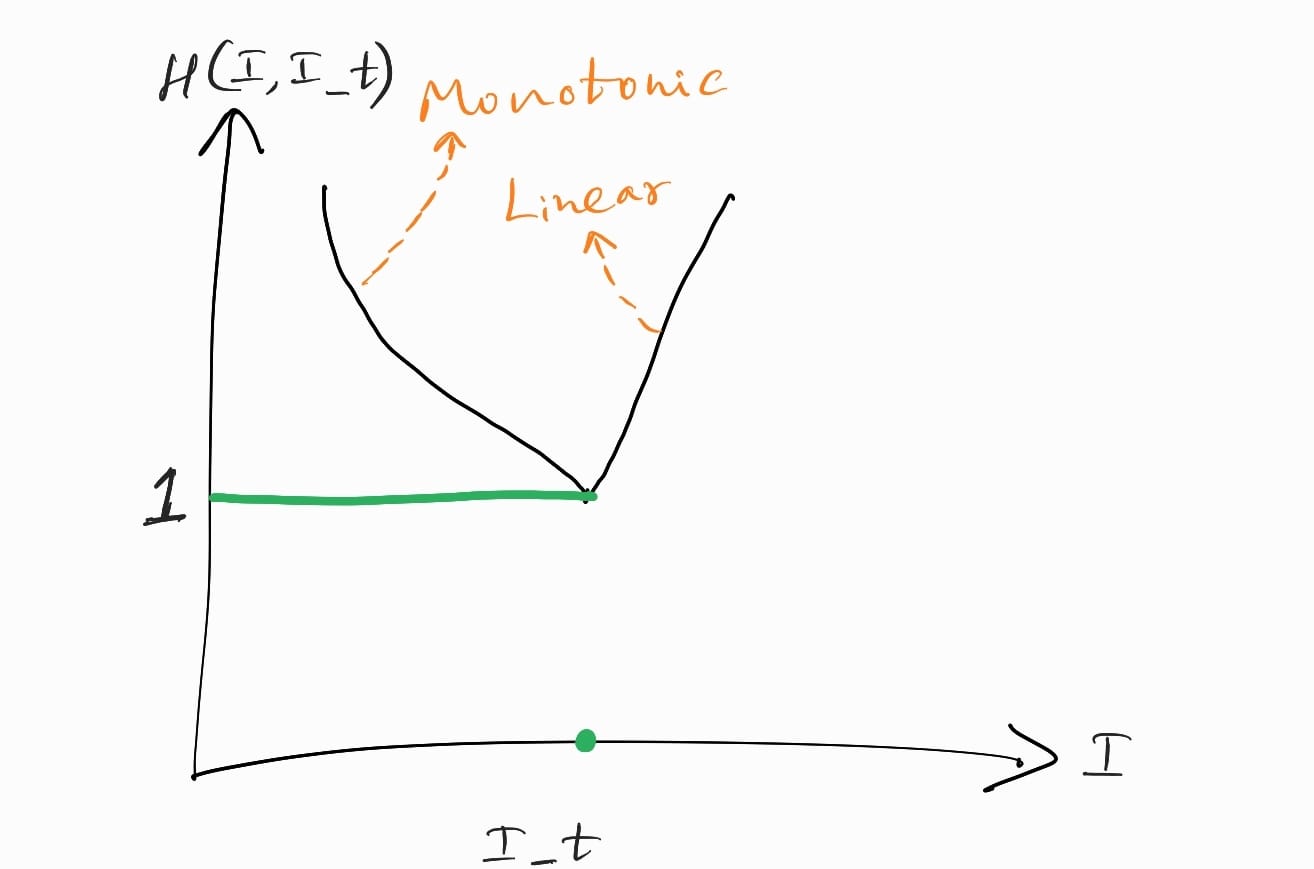 H(I,I_t)
Monotonic
Linear
1
I
I_t